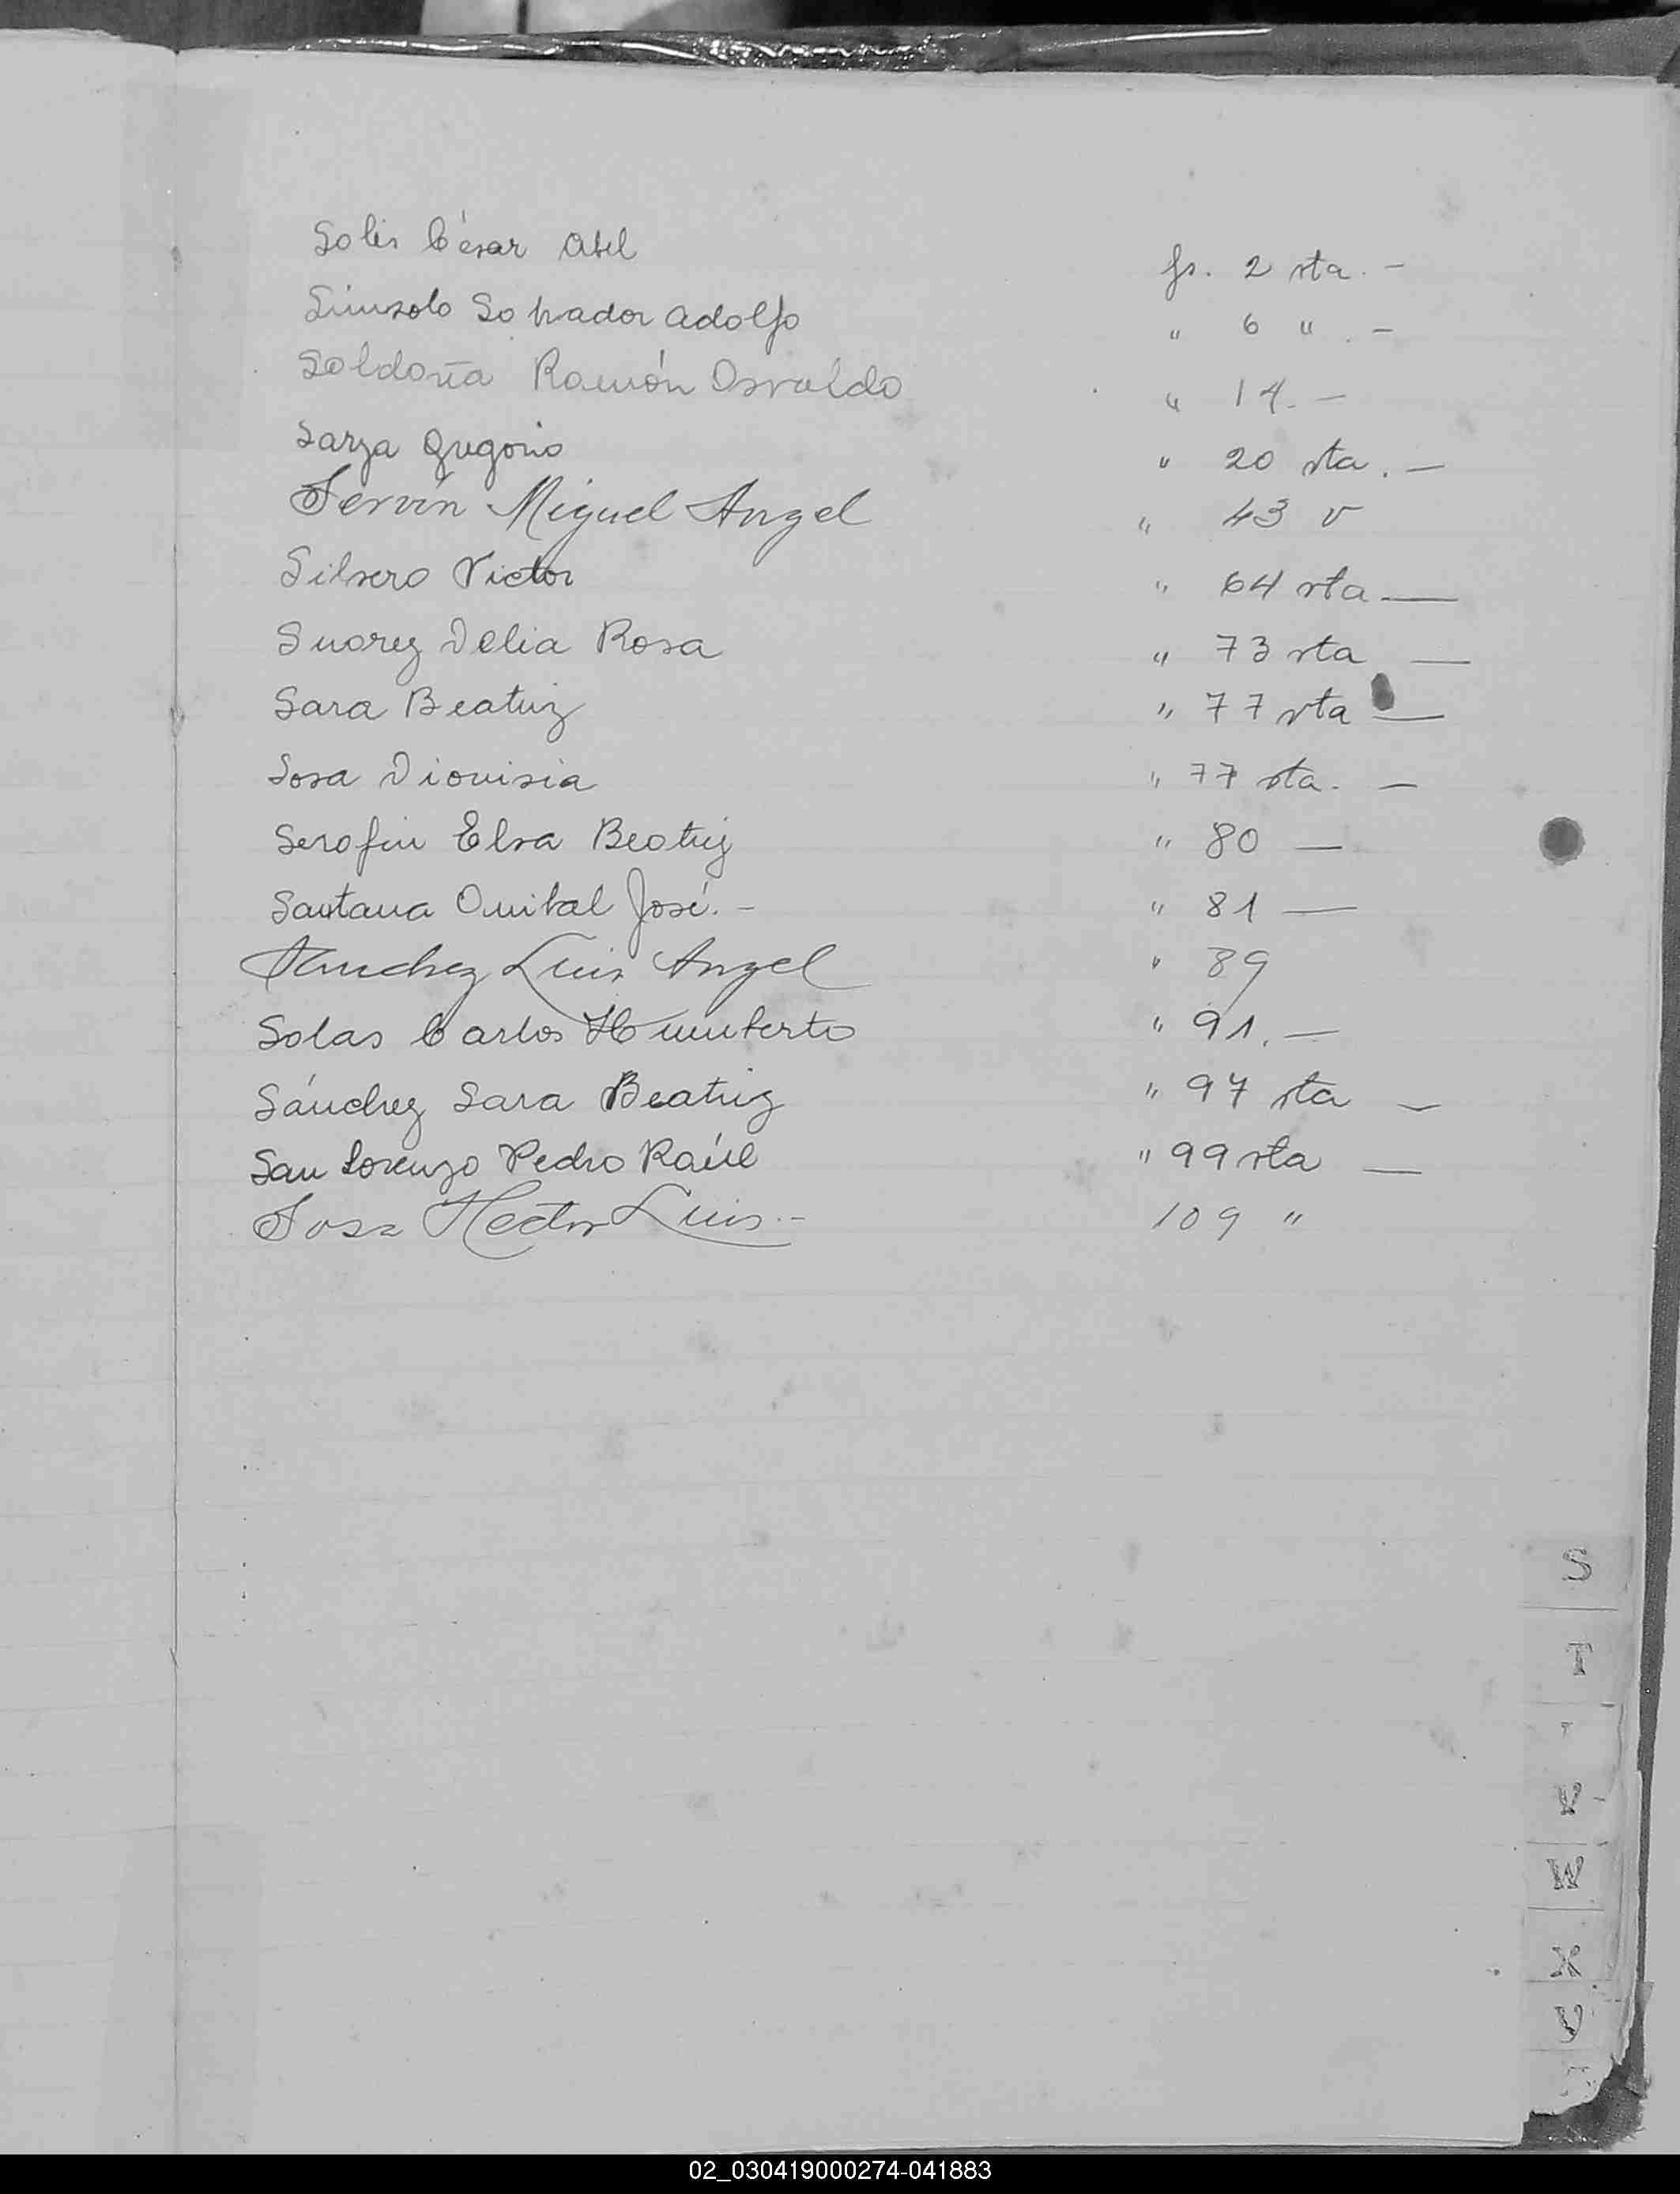 Solis César Abel fs. 2 vta. -
Sinzolo Salvador Adolfo " 6 " . -
Saldaña Ramón Osvaldo " 14. -
Sarza Gregorio " 20 vta. -
Servín Miguel Angel " 43 v
Silvero Victor " 64 vta -
Suarez Delia Rosa " 73 vta -
Sara Beatriz " 77 vta -
Sosa Dionisia " 77 vta. -
Serafin Elva Beatriz " 80 -
Santana Anibal José. - " 81 -
Sanchez Luis Angel " 89
Salas Carlos Humberto " 91. -
Sánchez Sara Beatriz " 97 vta -
San Lorenzo Pedro Raúl " 99 vta -
Sosa Hector Luis. - 109 "
S
T
V
W
X
Y
02_030419000274-041883